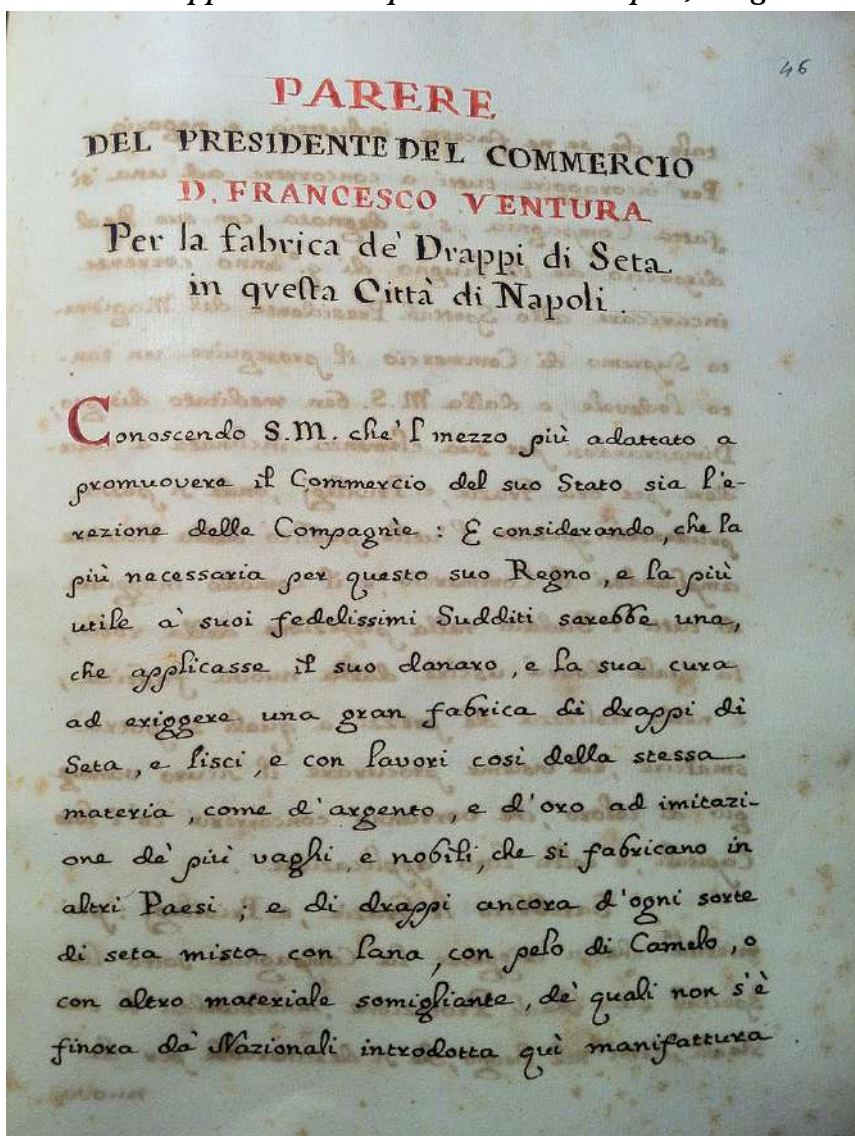 46
PARERE
DEL PRESIDENTE DEL COMMERCIO
D. FRANCESCO VENTURA
Per la fabrica de' Drappi di Seta
in qvesta Città di Napoli.
Conoscendo S.M. che'l mezzo più adattato a
promuovere il Commercio del suo Stato sia l'e-
rezione delle Compagnìe : E considerando, che la
più necessaria per questo suo Regno, e la più
utile a' suoi fedelissimi Sudditi sarebbe una,
che applicasse il suo danaro, e la sua cura
ad eriggere una gran fabrica di drappi di
Seta, e lisci, e con lavori così della stessa
materia, come d'argento, e d'oro ad imitazi-
one de' più vaghi, e nobili, che si fabricano in
altri Paesi ; e di drappi ancora d'ogni sorte
di seta mista con lana, con pelo di Camelo, o
con altro materiale somigliante, de' quali non s'è
finora da' Nazionali introdotta quì manifattura